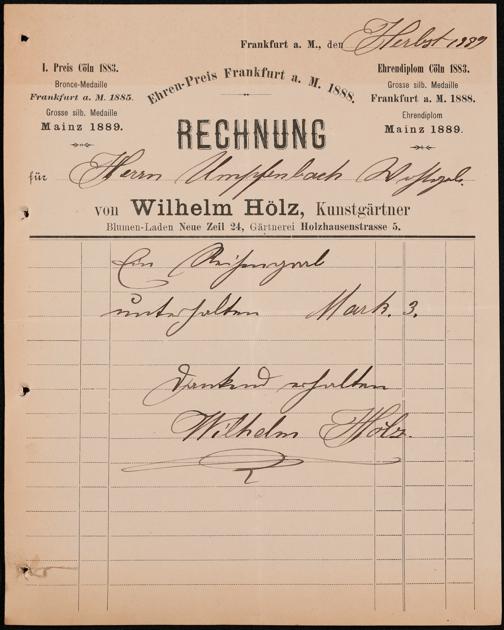 Frankfurt a. M., den Herbst 1889
I. Preis Cöln 1883.
Bronce-Medaille
Frankfurt a. M. 1885.
Grosse silb. Medaille
Mainz 1889.
Ehren-Preis Frankfurt a. M. 1888.
Ehrendiplom Cöln 1883.
Grosse silb. Medaille
Frankfurt a. M. 1888.
Ehrendiplom
Mainz 1889.
RECHNUNG
für Herrn Umpfenbach
von Wilhelm Hölz, Kunstgärtner
Blumen-Laden Neue Zeil 24, Gärtnerei Holzhausenstrasse 5.
Ein
unterhalten Mark. 3.
Dankend erhalten
Wilhelm Hölz.